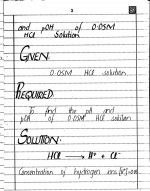 3
and pOH of 0.05M
HCl Solution.
GIVEN
0.05M HCl solution
REQUIRED
To find the pH and
pOH of 0.05M HCl solution
SOLUTION.
HCl → H⁺ + Cl⁻
Concentration of hydrogen ions